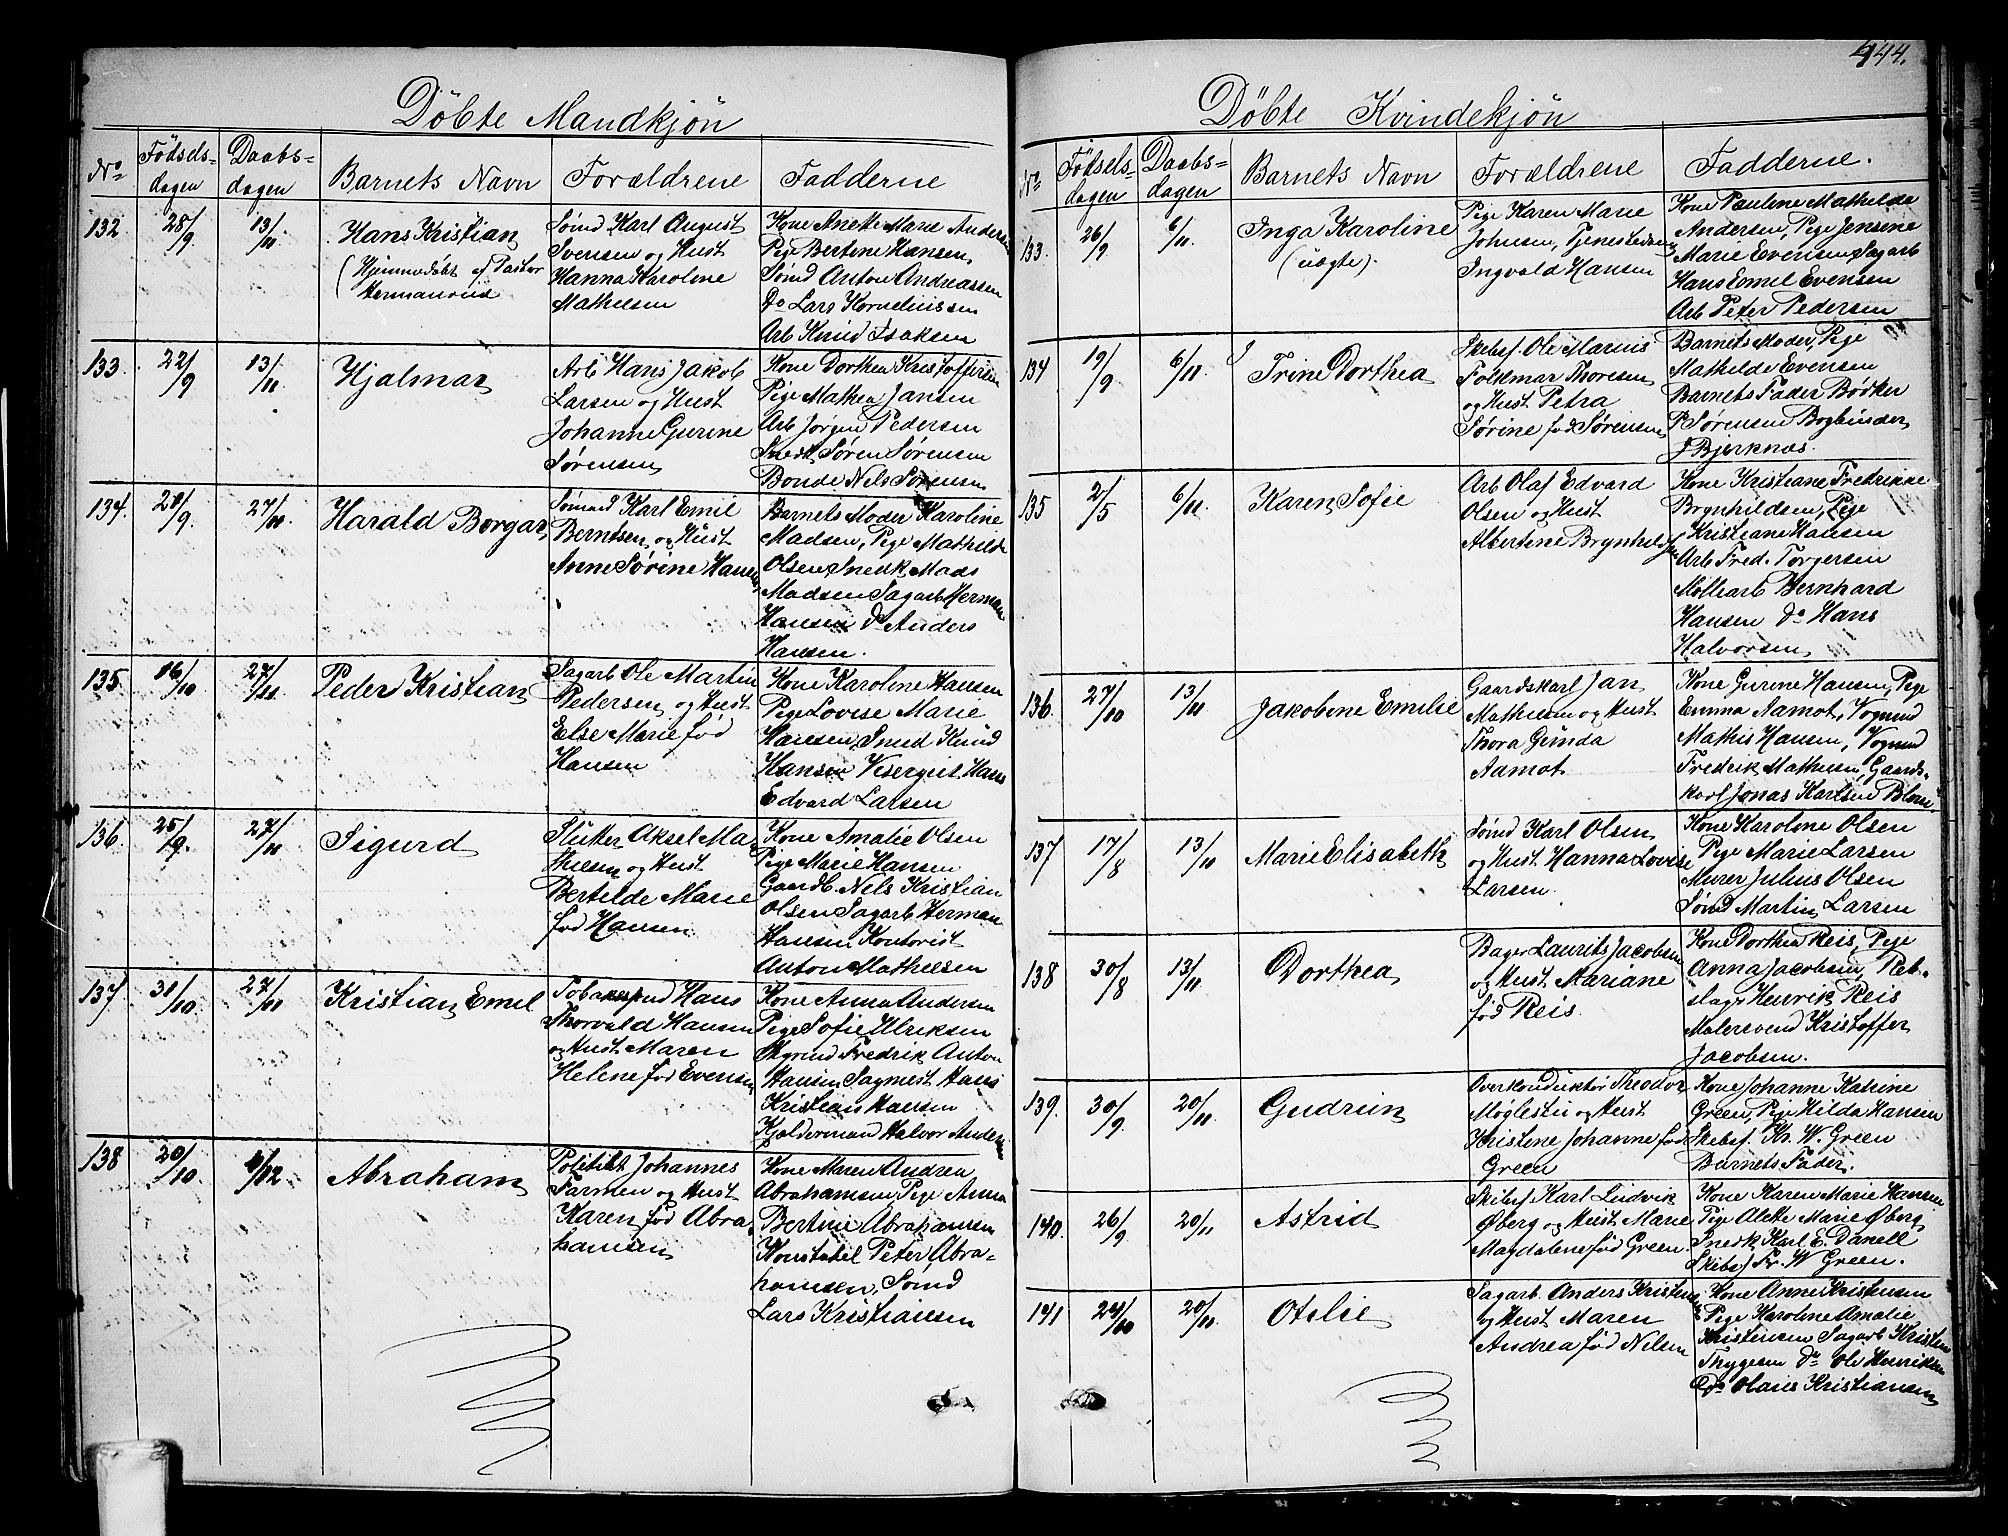 144.
Döbte Mandkjön
No
Födsels-
dagen
Daabs-
dagen
Barnets Navn
Forældrene
Fadderne
132
28/9.
13/11.
Hans Kristian
(Hjemmedöbt af Pastor
Hermanrud
Sömd Karl August
Svensen og Hust
Hanna Karoline
Mathesen
Kone Anette Marie Andersen
Pige Bertine Hansen
Sömd Anton Andreassen
Do Lars Korneliussen
Arb Knud Isaksen
133.
22/9
13/11.
Hjalmar
Arb Hans Jakob
Larsen og Hust
Johanne Gurine
Sørensen
Kone Dorthea Kristoffersen
Pige Mathea Jansen
Arb Jørgen Pedersen
Snedk Søren Sørensen
Bonde Nils Sørensen
134.
20/9.
27/11.
Harald Borgar
Sömand Karl Emil
Berntsen og Hust
Anne Sørine Hansen
Barnets Moder Karoline
Madsen, Pige Mathilde
Olsen Snedk Mads
Madsen Sagarb Herman
Hansen Do Anders
Hansen.
135.
16/10
27/11
Peder Kristian
Sagarb Ole Martin
Pedersen og Hust
Else Marie fød
Hansen
Kone Karoline Hansen
Pige Lovise Marie
Hansen, Smed Knud
Hansen Visergut Hans
Edvard Larsen
136.
25/9.
27/11
Sigurd
Slutter Aksel Ma
thiesen og Hust
Bertilde Marie
fød Hansen
Kone Amalie Olsen
Pige Marie Hansen
Gaardb. Nils Kristian
Olsen Sagarb Herman
Hansen Kontorist
Anton Mathesen
137
31/10.
27/11
Kristian Emil
Tobakspnd Hans
Thorvald Hansen
og Hust Maren
Helene fød Evensen
Kone Anna Andersen
Pige Sofie Ulriksen
Fredrik Anton
Hansen Sagmest Hans
Kristian Hansen
Kjeldermand Halvor Andersen
138
20/10.
4/12.
Abraham
Politibt Johannes
Farmen og Hust
Karen fød Abra
hamsen
Kone Maren Andrea
Abrahamsen Pige Anna
Bertine Abrahamsen
Konstabel Peter Abra-
hamsen, Sömd
Lars Kristiansen
Döbte Kvindekjön
No
Fødsels-
dagen
Daabs-
dagen
Barnets Navn
Forældrene
Fadderne.
133.
26/9
6/11.
Inga Karoline
(uægte).
Pige Karen Marie
Johnsen, Tjenestedreng
Ingvald Hansen
Kone Pauline Mathilde
Andersen, Pige Jensine
Marie Evensen Sagarb
Hans Emil Evensen
Arb Peter Pedersen
134
19/9
6/11.
Trine Dorthea
Skibsf. Ole Marius
Folkmar Thoresen
og Hust Petra
Sørine fød Sørensen
Barnets Moder, Pige
Mathilde Evensen
Barnets Fader Bødker
P. Sørensen Bogbinder
J Bjerknæs.
135
2/5
6/11.
Karen Sofie
Arb Olaf Edvard
Olsen og Hust
Albertine Brynhildsen
Kone Kristiane Fredrikke
Brynhildsen, Pige
Kristiane Hansen
Arb Fred. Torgersen
Möllearb Bernhard
Hansen Do Hans
Halvorsen
136.
27/10
13/11
Jakobine Emilie
Gaardskarl Jan
Mathesen og Hust
Thora Gunda
Aamot
Kone Gurine Hansen, Pige
Emma Aamot, Vognmd
Mathis Hansen, Vognmd
Fredrik Mathesen, Gaards-
karl Jonas Karlsen Blom
137
17/8
13/11
Marie Elisabeth
Sømd Karl Olsen
og Hust Hanna Lovise
Larsen.
Kone Karoline Olsen
Pige Marie Larsen
Murer Julius Olsen
Sømd Martin Larsen
138
30/8
13/11
Dorthea
Bager Laurits Jacobsen
og Hust Mariane
fød Reis.
Kone Dorthea Reis, Pige
Anna Jacobsen, Reb-
slager Henrik Reis
Malersvend Kristoffer
Jacobsen.
139.
30/9.
20/11
Gudrun
Overkonduktør Theodor
Møglestu og Hust
Kristine Johanne fød
Green
Kone Johanne Katrine
Green, Pige Hilda Hansen
Skibsf. Kr. W. Green
Barnets Fader.
140.
26/9.
20/11
Astrid
Skibsf Karl Ludvik
Øberg og Hust Marie
Magdalene fød Green.
Kone Karen Marie Hansen
Pige Alette Marie Øberg
Snedk Karl E. Danell
Skibsf Fr. W Green.
141
24/10
20/11
Otelie
Sagarb. Anders Kristensen
og Hust Maren
Andrea fød Nilsen
Kone Anne Kristensen
Pige Karoline Amalie
Kristensen Sagarb Kristen
Thygesen Do Ole Henriksen
Do Olaus Kristiansen